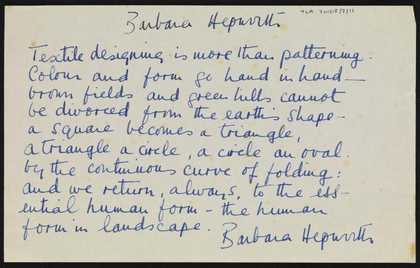 Barbara Hepworth
Textile designing is more than patterning.
Colour and form go hand in hand —
brown fields and green hills cannot
be divorced from the earth's shape —
a square becomes a triangle,
a triangle a circle, a circle an oval
by the continuous curve of folding:
and we return, always, to the ess-
ential human form – the human
form in landscape.
Barbara Hepworth